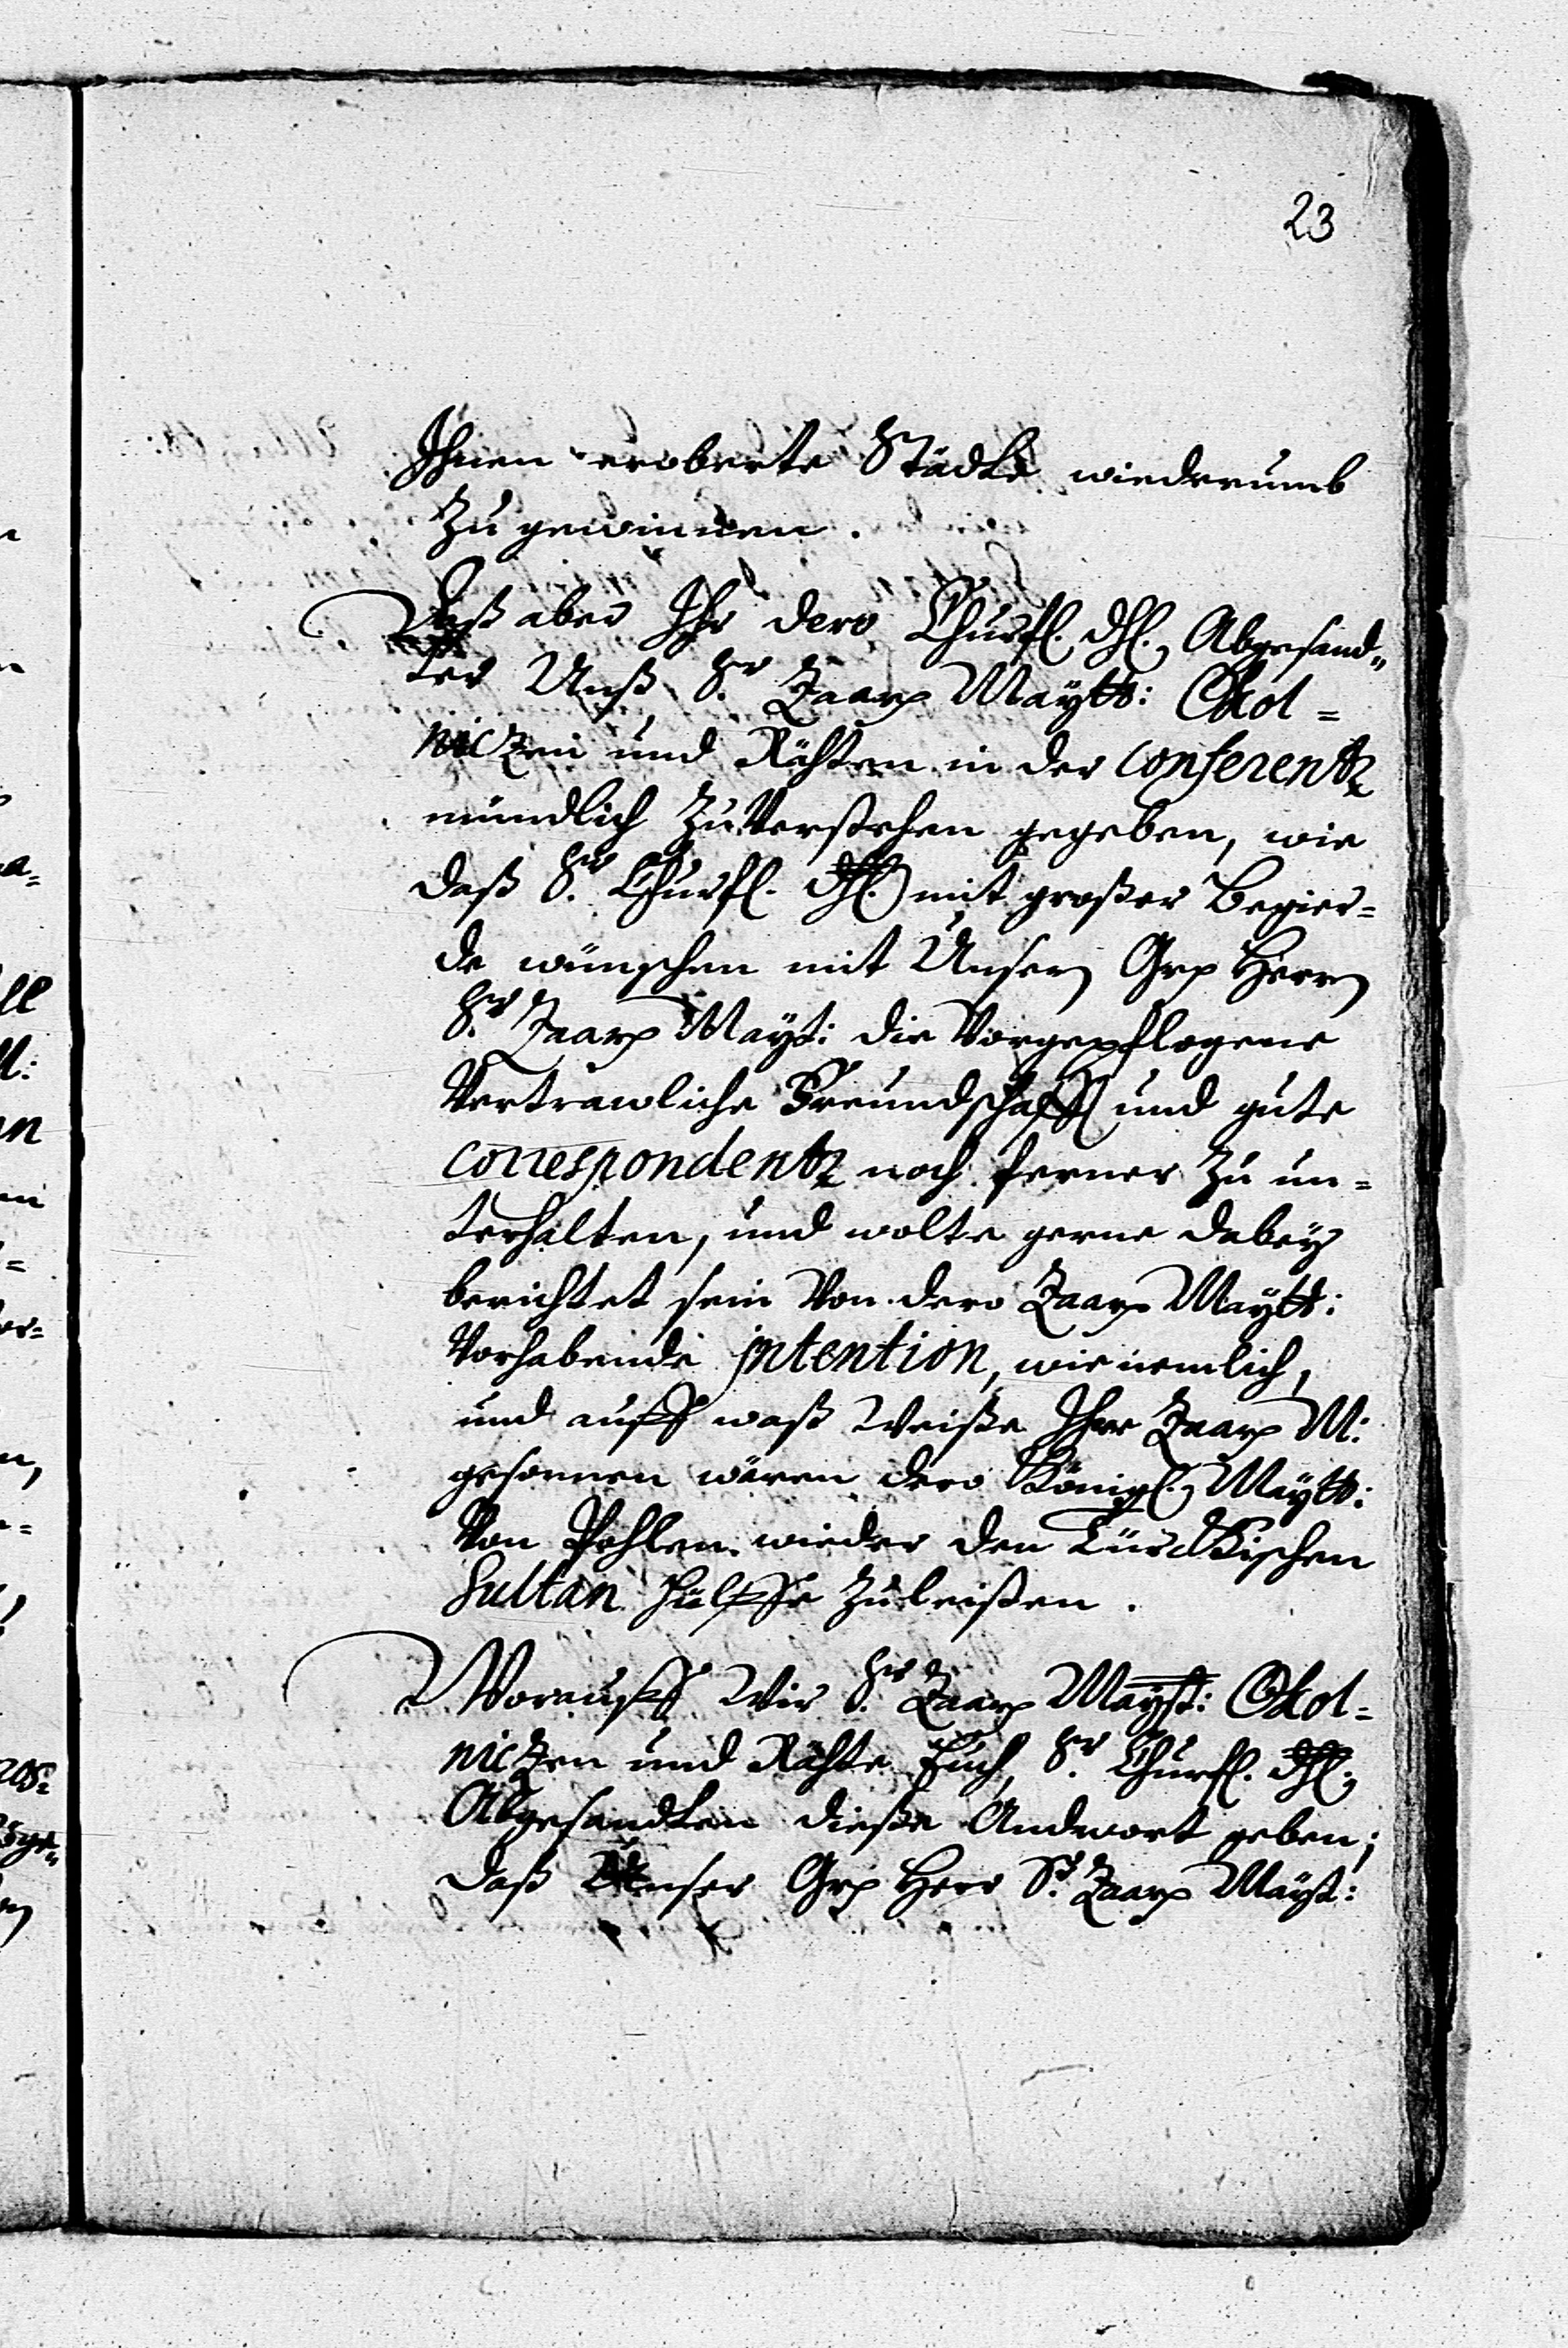 23
Ihnen eroberte Städte wiederumb
Zu gewinnen.
Daß aber Ihr dero Churfl. Dhl. Abgesand„
ter Unß, Sr. Zaarn Maytt: Okol=
niczen und Räthen in der Conferentz
mündlich Zu Verstehen gegeben, wie
daß Sr. Churfl. Dhl. mit großer Begier=
de wünschen mit Unsern Grn Herrn
Sr. Zaarn Mayt: die Vorgepflogene
Vertrawliche Freundschafft und gute
Correspondentz noch ferner Zu un=
terhalten, und wolte gerne dabey
berichtet sein Von dero Zaarn Maytt:
Vorhabende intention, wie nemlich,
und auff waß Weiße Ihre Zaarn M:
gesonnen wären dero Königl. Maytt:
Von Pohlen wieder den Türckischen
Sultan Hülffe Zu leisten.
Worauff Wir Sr. Zaarn Mayst: Okol=
niczen und Räthe Euch, Sr. Churfl. Dhl.
Abgesandten dieße Andwort geben;
daß Unser Grn Herr Sr. Zaarn Mayst: